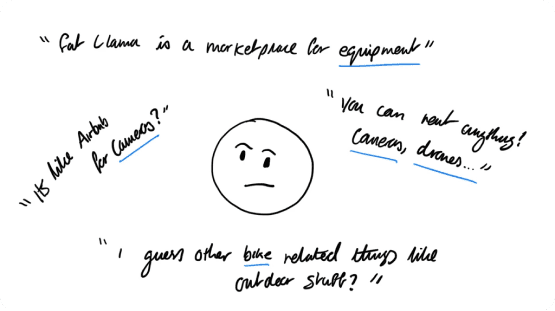 "Fat Llama is a marketplace for equipment"
"Its like Airbnb
for Cameras?"
"You can rent anything!
Cameras, drones..."
"I guess other bike related things like
outdoor stuff?"